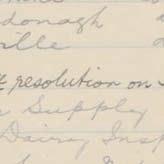 donagh
ville
resolution on
Supply
Dairy Insp